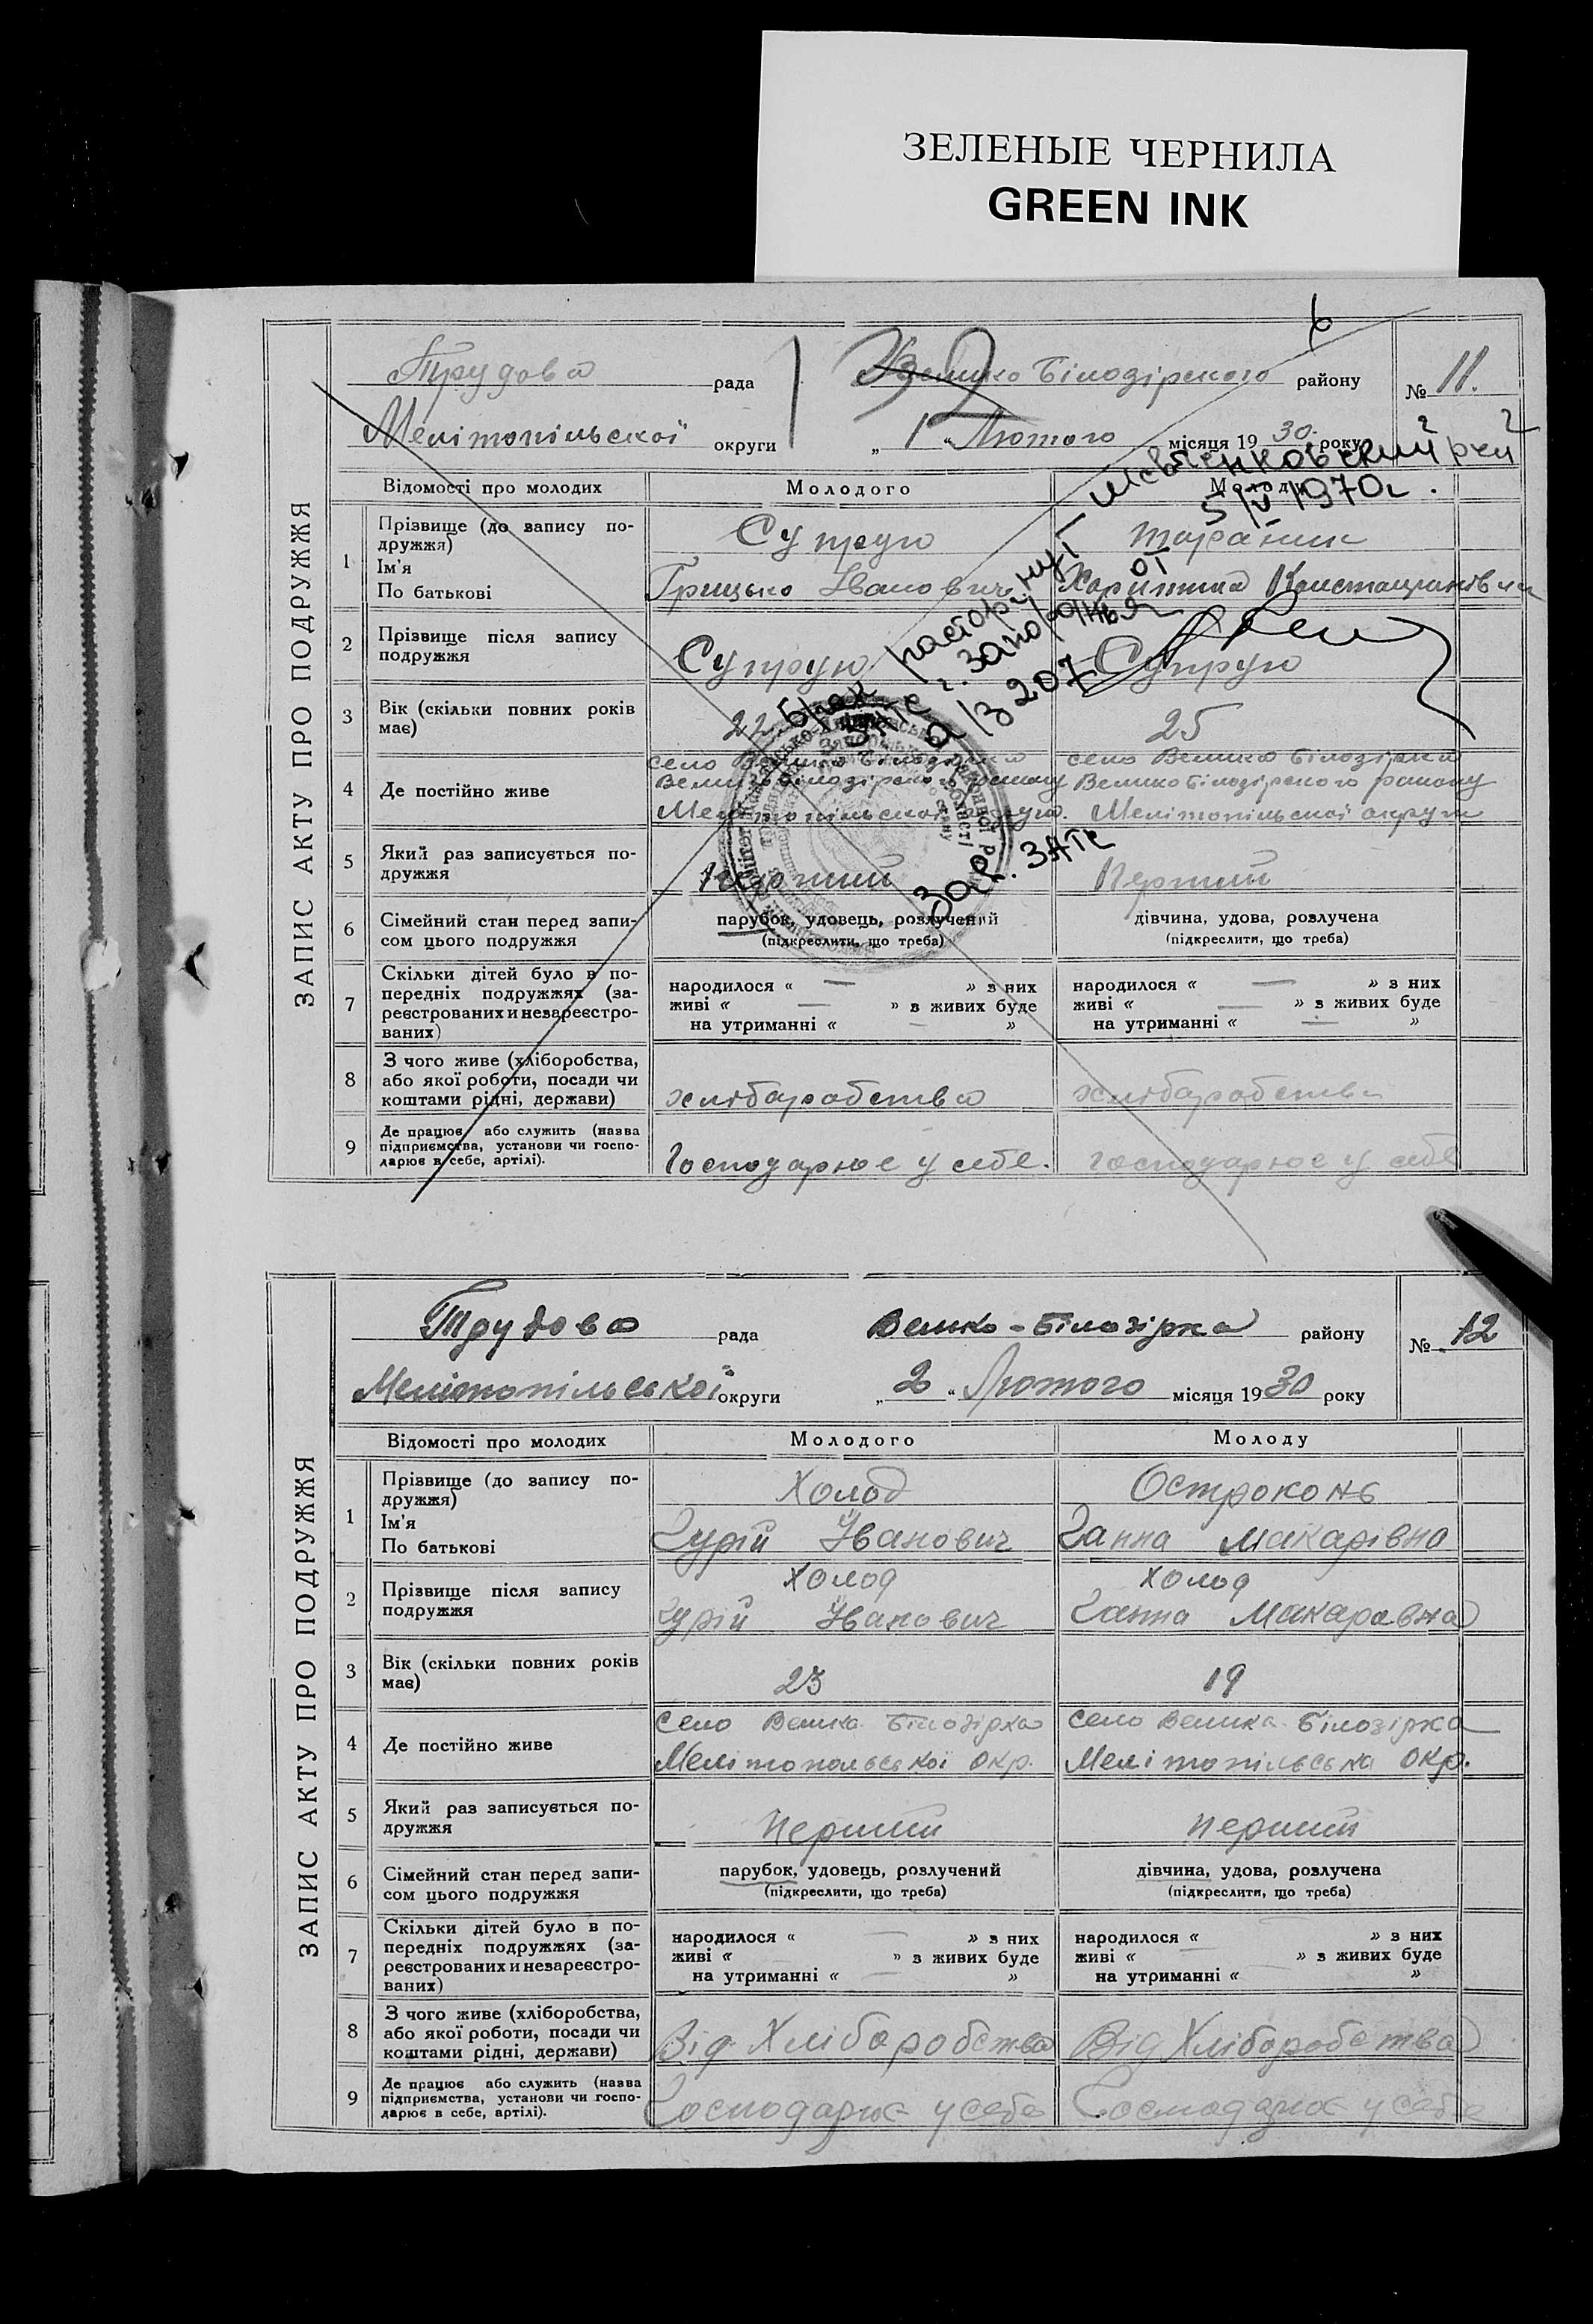 ЗЕЛЕНЫЕ ЧЕРНИЛА
GREEN INK
6
ЗАПИС АКТУ ПРО ПОДРУЖЖЯ
Трудова рада Велико Білозірського району № 11.
Мелітопільської округи „ 1 “ Лютого місяця 19 30 року
Відомості про молодих Молодого Молоду
1 Прізвище (до запису по-
дружжя)
Ім'я
По батькові
Супрун
Грицько Іванович
Тараник
Харитина Константинівна
2 Прізвище після запису
подружжя
Супрун Супрун
3 Вік (скільки повних років
має)
22 25
4 Де постійно живе
село Велика Білозірка
Велико Білозірського району
Мелітопільської округи.
село Велика Білозірка
Велико Білозірського району
Мелітопільської округи
5 Який раз записується по-
дружжя
Перший Перший
6 Сімейний стан перед запи-
сом цього подружжя
парубок, удовець, розлучений
(підкреслити, що треба)
дівчина, удова, розлучена
(підкреслити, що треба)
7 Скільки дітей було в по-
передніх подружжях (за-
реєстрованих и незареєстро-
ваних)
народилося « — » з них
живі « — » з живих буде
на утриманні « — »
народилося « — » з них
живі « — » з живих буде
на утриманні « — »
8 З чого живе (хліборобства,
або якої роботи, посади чи
коштами рідні, держави)
хлібаробства хлібаробства
9 Де працює або служить (назва
підприємства, установи чи госпо-
дарює в себе, артілі).
Господарює у себе. Господарює у себе
Брак расторгнут Шевченковский рай
ЗАГС г. Запорожья от 5/V 1970г.
а/з 207
Зав. ЗАГС
ЗАПИС АКТУ ПРО ПОДРУЖЖЯ
Трудова рада Велико-Білозірка району № 12
Мелітопільської округи „ 2 “ Лютого місяця 19 30 року
Відомості про молодих Молодого Молоду
1 Прізвище (до запису по-
дружжя)
Ім'я
По батькові
Холод
Гурій Іванович
Остроконь
Ганна Макарівна
2 Прізвище після запису
подружжя
Холод
Гурій Іванович
Холод
Ганна Макаравна
3 Вік (скільки повних років
має)
23 19
4 Де постійно живе
село Велика Білозірка
Мелітопольської окр.
село Велика Білозірка
Мелітопільська окр.
5 Який раз записується по-
дружжя
перший перший
6 Сімейний стан перед запи-
сом цього подружжя
парубок, удовець, розлучений
(підкреслити, що треба)
дівчина, удова, розлучена
(підкреслити, що треба)
7 Скільки дітей було в по-
передніх подружжях (за-
реєстрованих и незареєстро-
ваних)
народилося « — » з них
живі « » з живих буде
на утриманні « — »
народилося « » з них
живі « — » з живих буде
на утриманні « »
8 З чого живе (хліборобства,
або якої роботи, посади чи
коштами рідні, держави)
Від Хліборобства Від Хліборобства
9 Де працює або служить (назва
підприємства, установи чи госпо-
дарює в себе, артілі).
Господарює у себе Господарює у себе